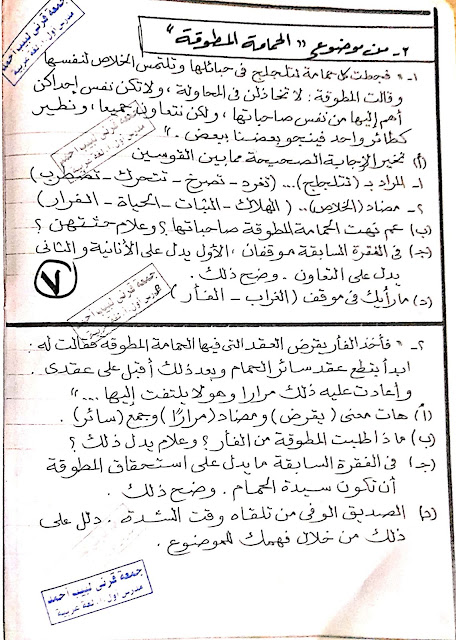 جمعة قرني لبيب احمد
مدرس اول . لغة عربية
٢- من موضوعي "الحمامة المطوقة"
١- « فجعلت كل حمامة تتلجلج في حبائلها وتلتمس الخلاص لنفسها
وقالت المطوقة : لا تخاذلن في المحاولة ، ولا تكن نفس إحداكن
أهم إليها من نفس صاحباتها ، ولكن نتعاون جميعا ، ونطير
كطائر واحد فينجو بعضنا ببعض . »
(أ) تخير الإجابة الصحيحة مما بين القوسين
١- المراد بـ (تتلجلج) ... (تغرد - تصرخ - تتحرك - تضطرب)
٢- مضاد (الخلاص) .. ( الهلاك - الثبات - الحياة - الفرار)
(ب) عم نهت الحمامة المطوقة صاحباتها ؟ وعلام حثتهن ؟
(جـ) في الفقرة السابقة موقفان ، الأول يدل على الأنانية والثاني
يدل على التعاون . وضح ذلك .
(د) ما رأيك في موقف (الغراب - الفأر)
٧
جمعة قرني لبيب احمد
مدرس اول . لغة عربية
جمعة قرني لبيب احمد
مدرس اول . لغة عربية
٢- « فأخذ الفأر يقرض العقد التي فيها الحمامة المطوقة فقالت له :
ابدأ بقطع عقد سائر الحمام وبعد ذلك أقبل على عقدي .
وأعادت عليه ذلك مرارا وهو لا يلتفت إليها ... »
(أ) هات معنى (يقرض) ومضاد (مرارًا) وجمع (سائر) .
(ب) ماذا طلبت المطوقة من الفأر ؟ وعلام يدل ذلك ؟
(جـ) في الفقرة السابقة ما يدل على استحقاق المطوقة
أن تكون سيدة الحمام . وضح ذلك .
(د) الصديق الوفي من تلقاه وقت الشدة . دلل على
ذلك من خلال فهمك للموضوع .
جمعة قرني لبيب احمد
مدرس اول . لغة عربية